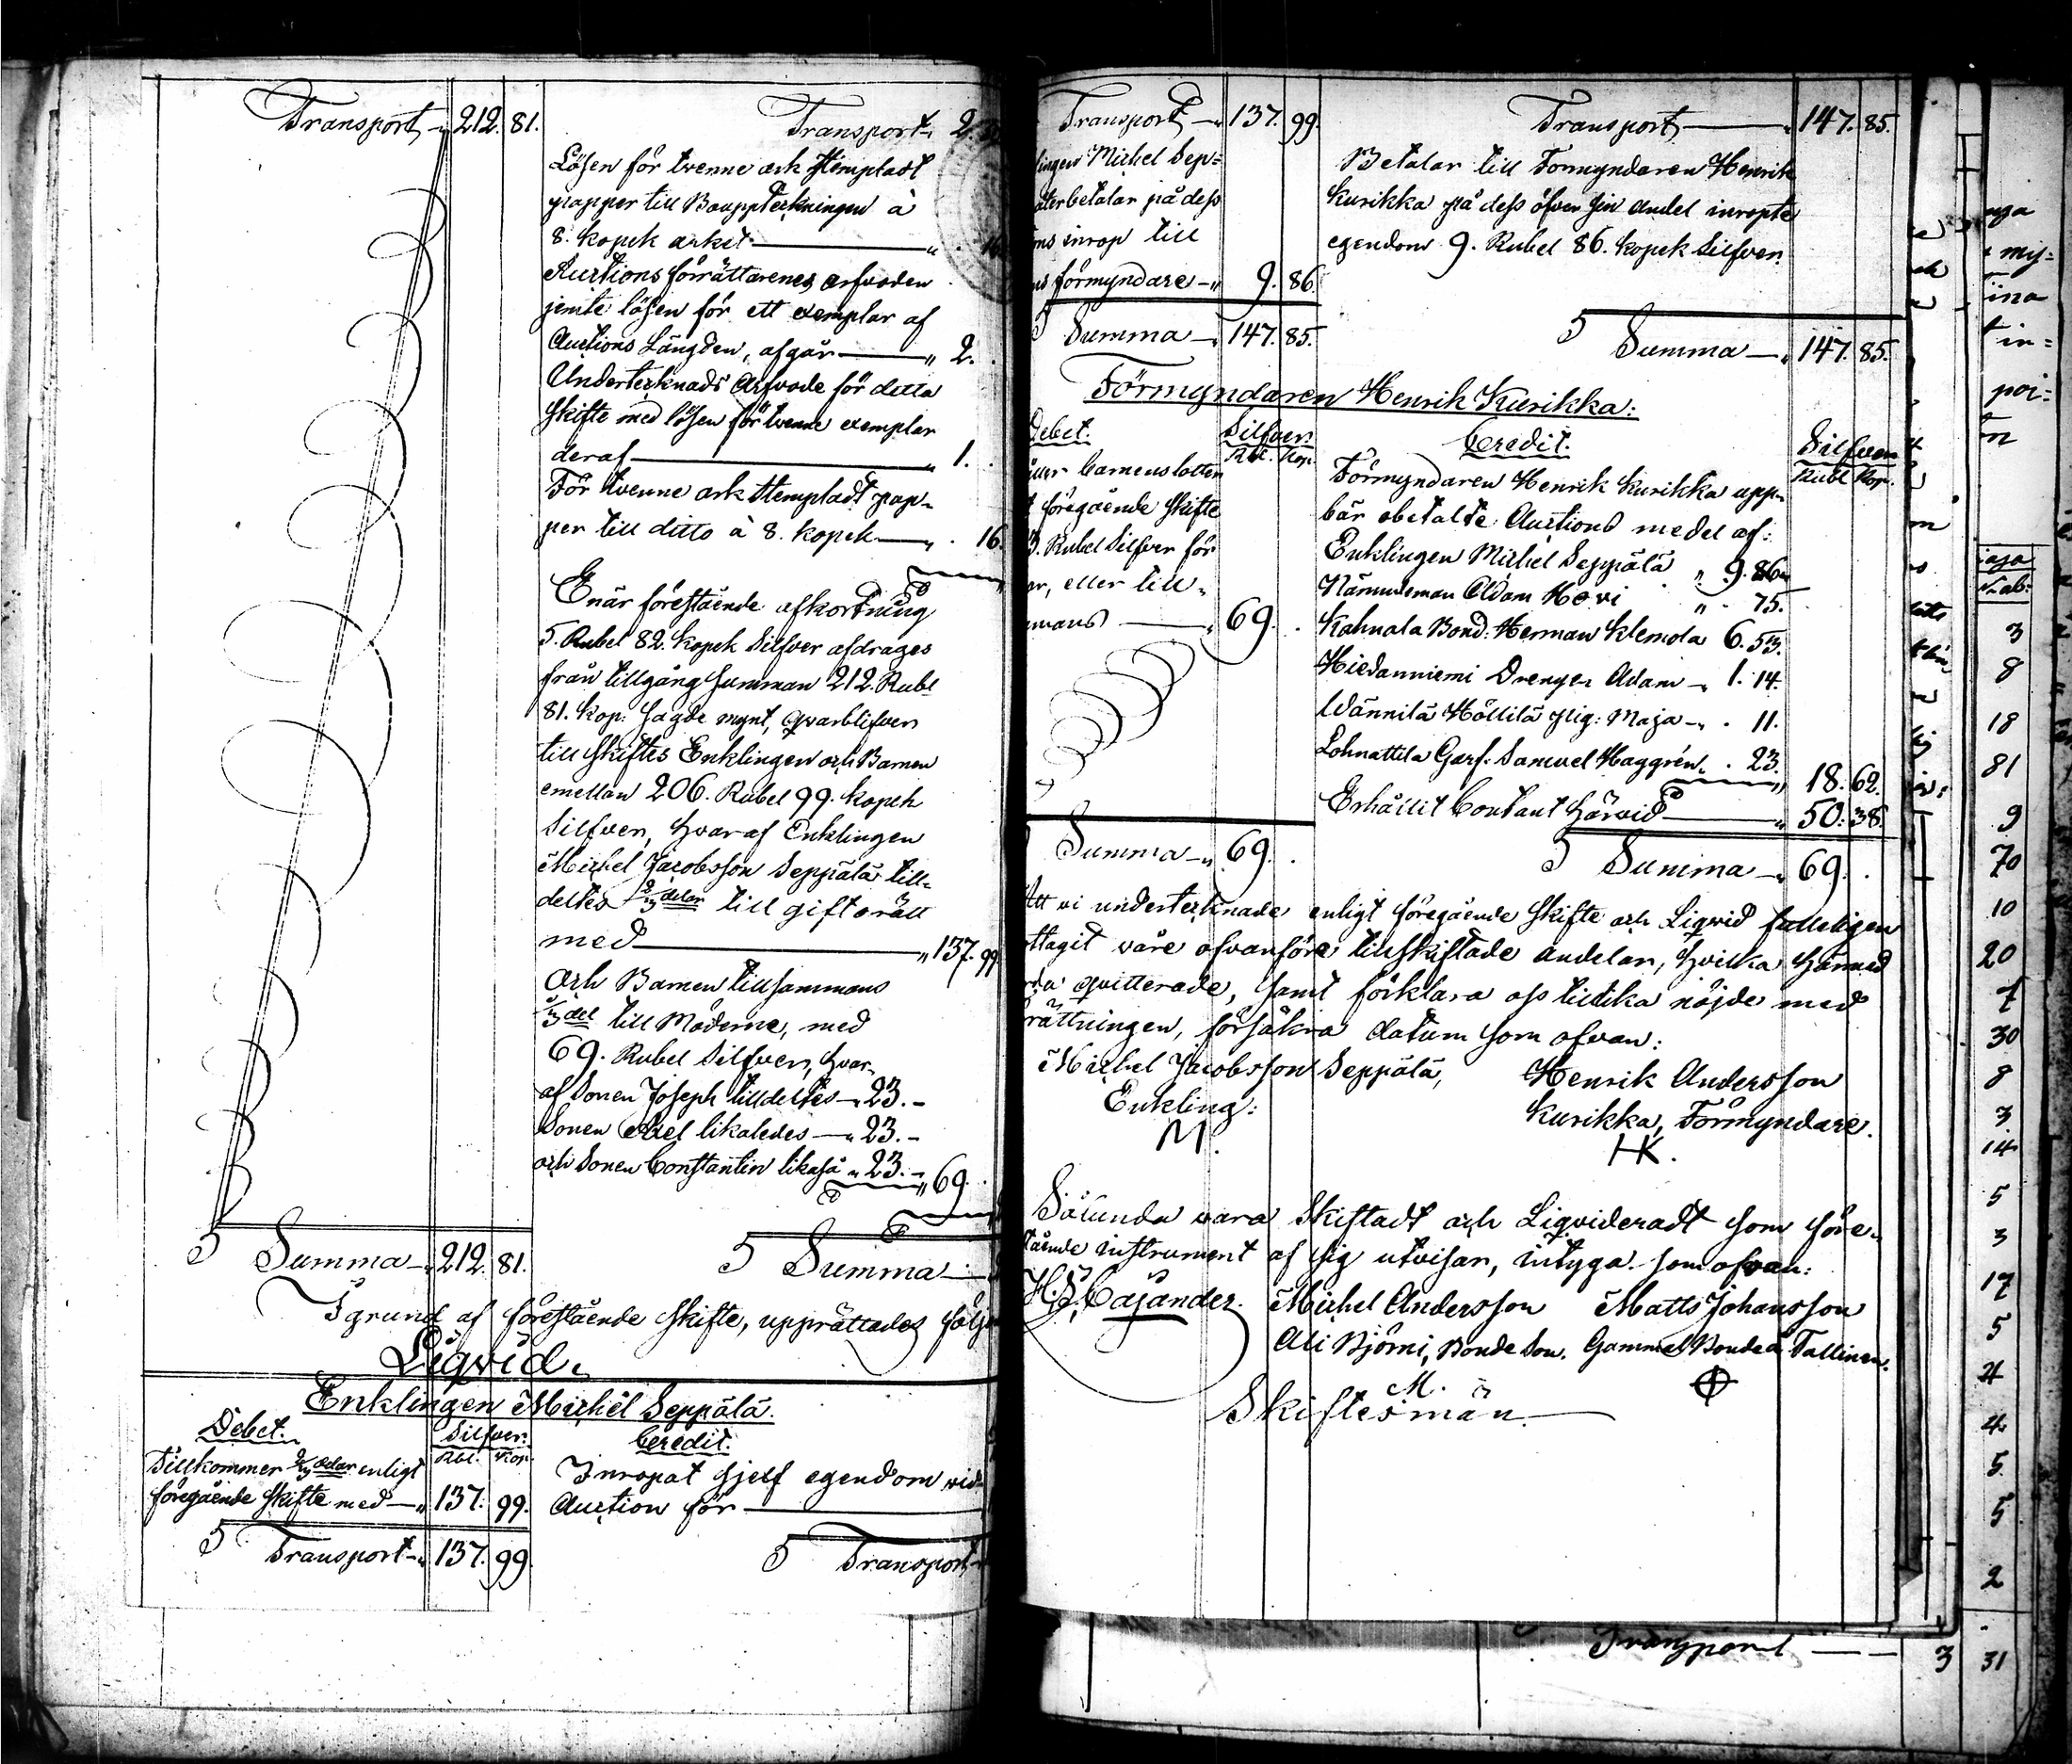 Transport 212. 81.
Transport 2.
Lösen för tvenne ark stempladt
papper till Bouppteckningen à
8. kopek arket 16
Auctions förrättarenes arfvoden
jemte lösen för ett exemplar af
Auctions Längden, afgår 2.
Undertecknads Arfvode för detta
skifte med lösen för tvenne exemplar
deraf 1.
För tvenne ark stempladt pap-
per till ditto à 8. kopek 16.
Enär förestående afkortning
5. Rubel 82. kopek Silfver afdrages
från tillgång summan 212. Rubl
81. kop: sagde mynt, qvarblifver
till skiftes Enklingen och Barnen
emellan 206. Rubel 99. kopek
Silfver, hvaraf Enklingen
Michel Jacobsson Seppälä till-
deltes 2/3 delar till giftorätt
med 137. 99
och Barnen tillsammans
1/3 del till Möderne, med
69. Rubel Silfver, hvar-
af Sonen Joseph tilldeltes 23.-
Sonen Abel likaledes 23.-
och Sonen Constantin likaså 23.- 69.
Summa 212. 81.
Summa
I grund af förestående skifte, upprättades följ
Liqvid.
Enklingen Michel Seppälä.
Debet. Silfver. Credit.
Rbl. Kop.
Tillkommer 2/3 delar enligt
föregående skifte med 137. 99.
Inropat sjelf egendom vid
Auction för
Transport 137. 99
Transport
Transport 137. 99.
lingen Michel Sep-
återbetalar på dess
ons inrop till
ns förmyndare 9. 86.
Summa 147. 85.
Transport 147. 85.
Betalar till Förmyndaren Henrik
Kurikka på dess öfver sin andel inropte
egendom 9. Rubel 86. kopek Silfver.
Summa 147. 85.
Förmyndaren Henrik Kurikka:
Debet. Silfver.
Rbl. Kop.
barnens lotter
föregående skifte
3. Rubel Silfver för
ar, eller till-
mans 69.
Summa 69.
Credit. Silfver
Rubl Kop.
Förmyndaren Henrik Kurikka upp-
bär obetalte Auctions medel af:
Enklingen Michel Seppälä 9. 86.
Nämndeman Adam Hovi 75.
Kahnala Bond: Herman Klemola 6. 53.
Hiedanniemi Drengen Adam 1. 14.
Wännilä Höllilä pig: Maja 11.
Lohnattila Garf: Samuel Haggrén 23. 18. 62.
Erhållit Contant härvid 50. 38.
Summa 69.
Att vi undertecknade enligt föregående skifte och Liqvid fulleligen
ottagit våre ofvanföre tillskiftade andelar, hvilka härmed
qvitterade, samt förklara oss tillika nöjde med
rättningen, försäkra datum som ofvan:
Michel Jacobsson Seppälä, Henrik Andersson
Enkling: Kurikka, Förmyndare.
M. HK.
Sålunda vara skiftadt och Liqvideradt som före-
stående instrument af sig utvisar, intyga som ofvan:
H. G. Cajander. Michel Andersson Matts Johansson
Ali Björni, Bonde Son. Gammel Bonde å Tallinen.
M.
Skiftesmän.
my-
ina
t in-
poi-
3
8
18
81
9
70
10
20
7
30
8
3
14
5
3
17
5
4
4
5
5
2
Transport 3 31